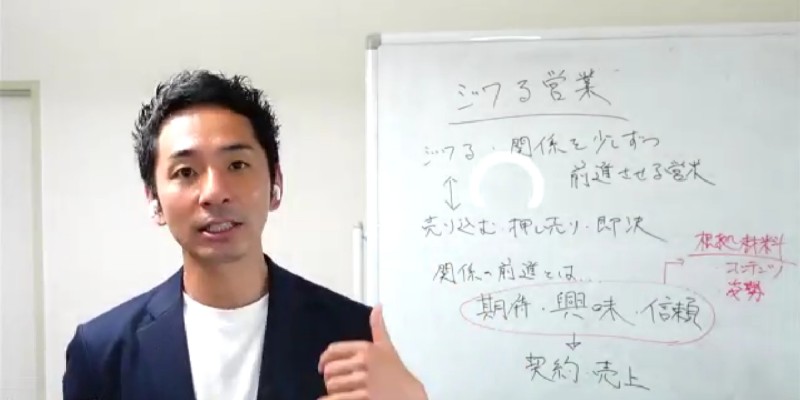 ジワる営業
ジワる・関係を少しずつ
前進させる営業
↕
売り込む・押し売り・即決
関係の前進とは…
期待・興味・信頼
↓
契約・売上
根拠・材料
コンテンツ
姿勢